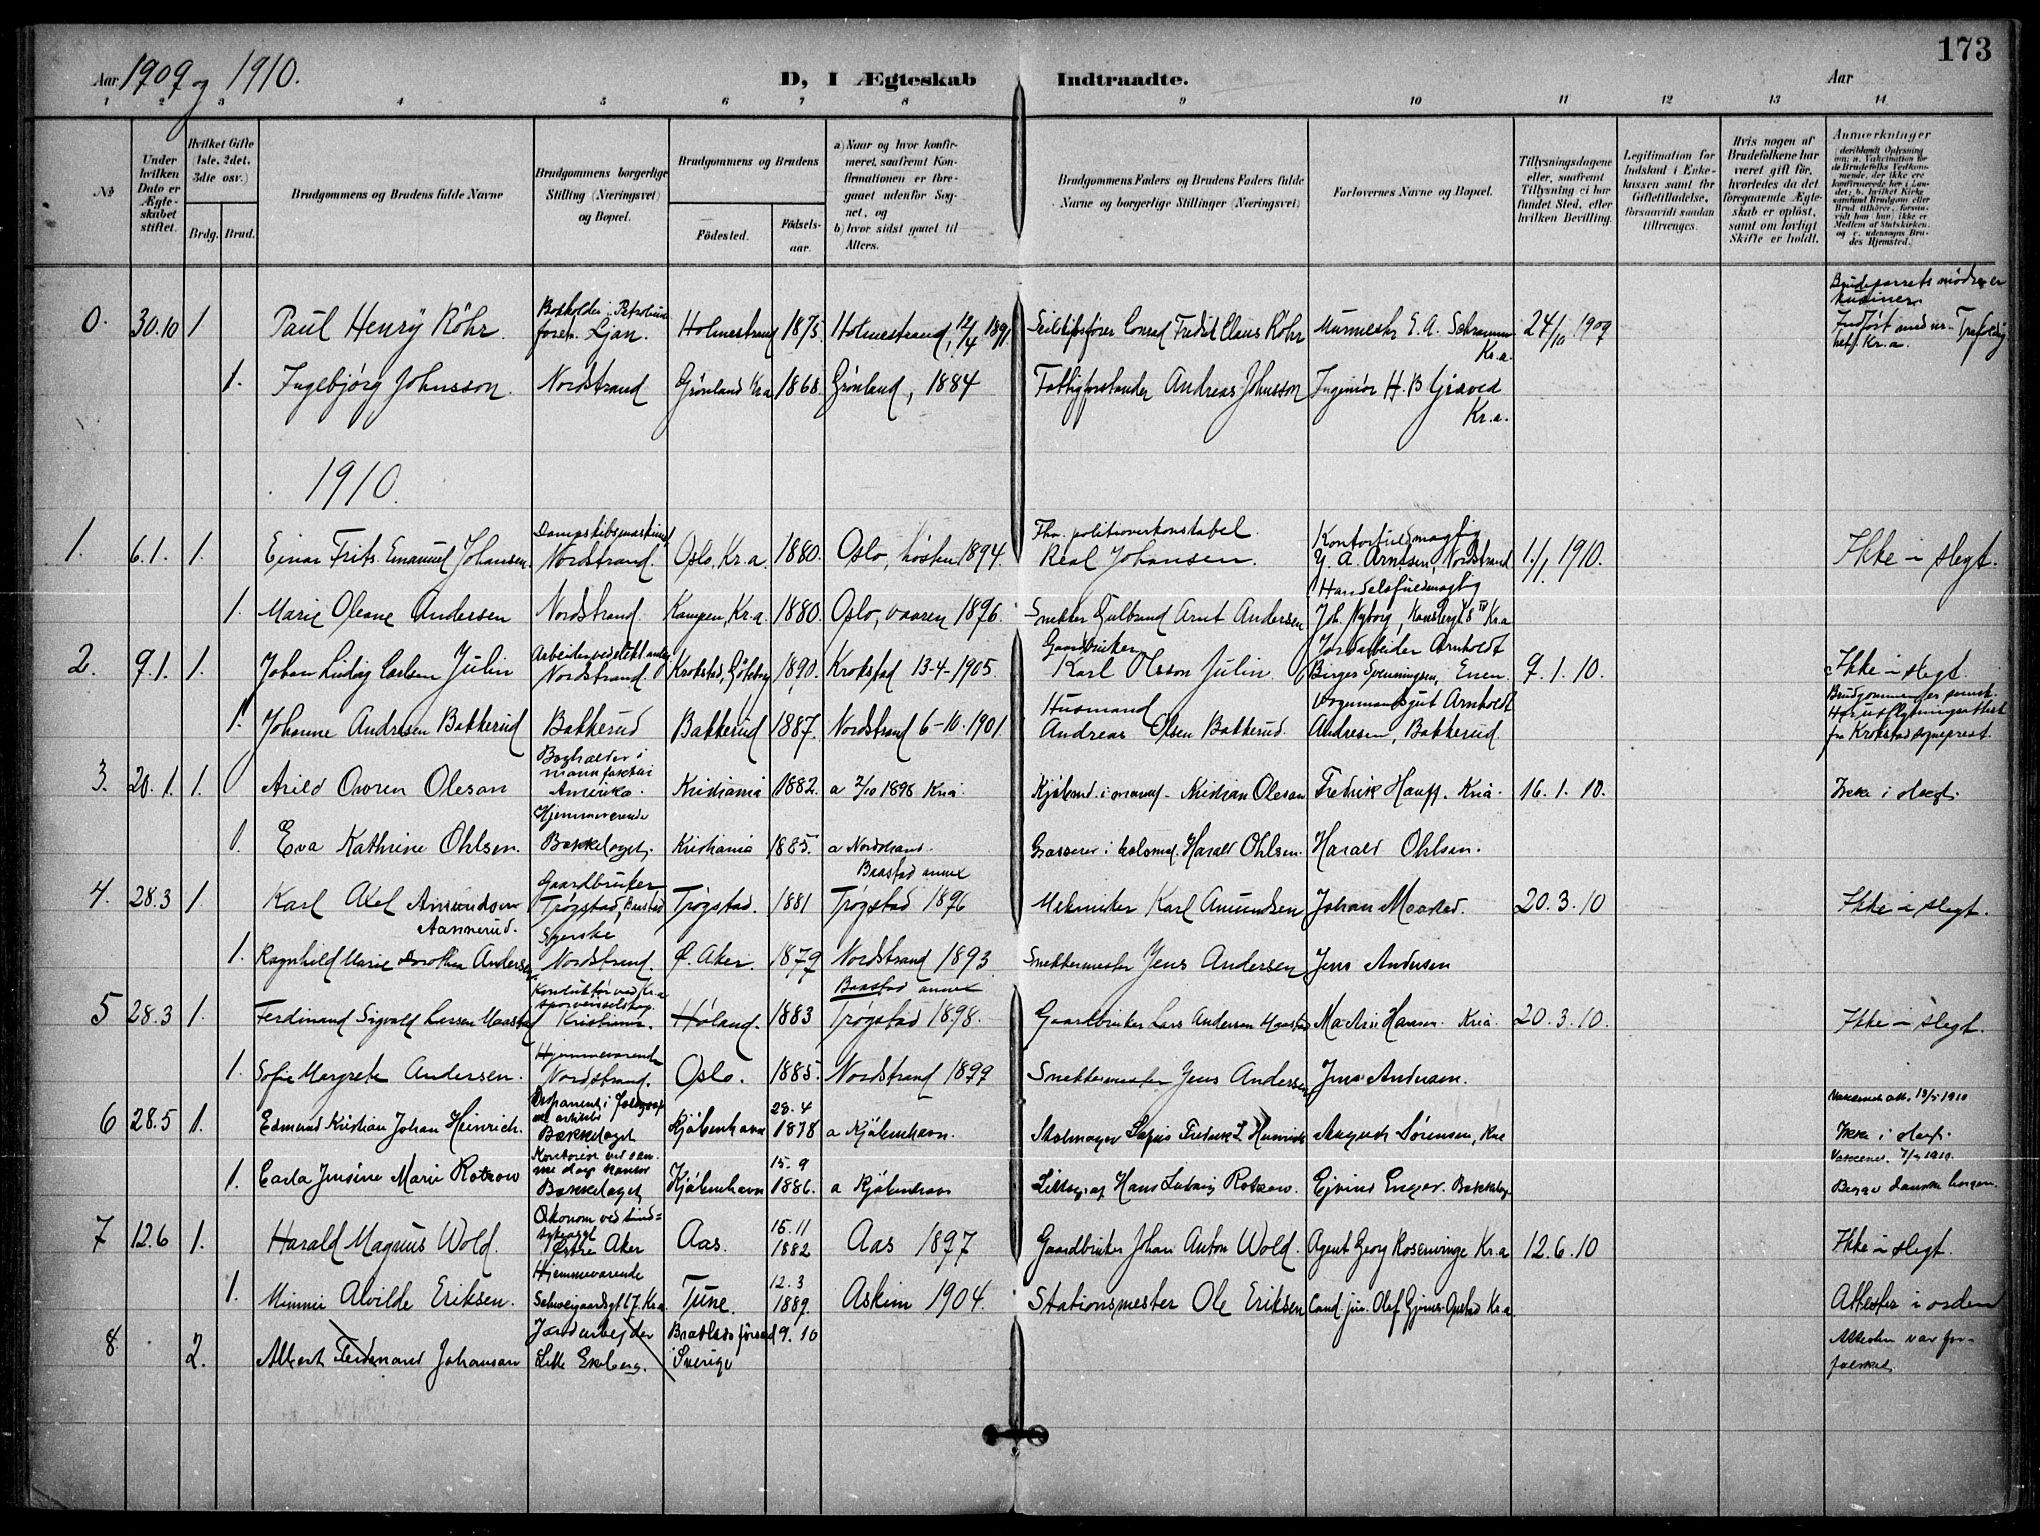 173
Aar 1909 og 1910.
D, I Ægteskab Indtraadte.
Aar
1 2 3 4 5 6 7 8 9 10 11 12 13 14
No
Under hvilken Dato er Ægteskabet stiftet.
Hvilket Gifte (1ste, 2det, 3die osv.)
Brdg. Brud.
Brudgommens og Brudens fulde Navne
Brudgommens borgerlige Stilling (Næringsvei) og Bopæl.
Brudgommens og Brudens
Fødested. Fødselsaar.
a) Naar og hvor konfirmeret, saafremt Konfirmationen er foregaaet udenfor Sognet, og
b) hvor sidst gaaet til Alters.
Brudgommens Faders og Brudens Faders fulde Navne og borgerlige Stillinger (Næringsvei)
Forlovernes Navne og Bopæl.
Tillysningsdagene eller, saafremt Tillysning ei har fundet Sted, efter hvilken Bevilling.
Legitimation for Indskud i Enkekassen samt for Giftetilladelse, forsaavidt saadan tiltrænges.
Hvis nogen af Brudefolkene har været gift før, hvorledes da det foregaaende Ægteskab er opløst, samt om lovligt Skifte er holdt.
Anmerkninger
0. 30.10 1 Paul Henry Röhr Ljan. Holmestrand 1875 Holmestrand, 12/4 1891 Conrad Fredrik Claus Röhr Murmester E. A. Schramm Kr.a. 24/10 1909 Brudeparrets mødre er kusiner.
1. Ingebjørg Johnsson. Nordstrand Grønland Kr.a 1868 Grønland, 1884 Fattigforstander Andreas Johnsson Ingeniør H. B. Kr.a.
1910.
1. 6.1. 1. Einar Frits Emanuel Johansen. Nordstrand. Oslo, Kr.a. 1880. Oslo, høsten 1894. Fhv. politioverkonstabel Johansen. Kontorfuldmægtig A. Arntsen, Nordstrand 1/1 1910. Ikke i slegt.
1. Marie Oleane Andersen Nordstrand. Kampen, Kr.a. 1880. Oslo, vaaren 1896. Snekker Gulbrand Arnt Andersen Handelsfuldmægtig Joh. Nyborg, Kr.a
2. 9.1. 1. Johan Ludvig Carlsen Julin Nordstrand. Krokstad, Göteborg 1890. Krokstad 13-4-1905. Gaardbruker Karl Olsson Julin Jordarbeider Arnholdt Birger Svenningsen, Enen. 9.1.10. Ikke i slegt. Brudgommen er svensk. Har utflytningsattest fra Krokstad sogneprest.
1. Johanne Andresen Bakkerud Bakkerud Bakkerud 1887. Nordstrand 6-10-1901. Husmand Andreas Olsen Bakkerud. Arnholdt Andresen, Bakkerud.
3. 20.1. 1. Arild Owren Olesen Boghalder i Amerika. Kristiania 1882. a 2/10 1898 Kria. Kristian Olesen Fredrik Kria. 16.1.10. Ikke i slegt.
1. Eva Kathrine Ohlsen. Hjemmeværende Bækkelaget. Kristiania 1885. a Nordstrand. Grosserer i Harald Ohlsen. Harald Ohlsen.
4. 28.3 1. Karl Axel Amundsen Aannerud. Gaardbruker Trøgstad, Baastad Trøgstad. 1881 Baastad annex Trøgstad 1896 Mekniker Karl Amundsen Johan Maastad. 20.3.10 Ikke i slegt.
1. Ragnhild Marie Dorothea Andersen Syerske Nordstrand. Ø. Aker. 1879 Nordstrand 1893 Snekkermester Jens Andersen Jens Andersen
5 28.3 1. Ferdinand Sigvald Larsen Maastad Konduktør ved Kr.a sporveisselskap Kristiania. Høland. 1883 Baastad annex Trøgstad 1898. Gaardbruker Lars Andersen Maastad Hansen. Kria. 20.3.10. Ikke i slegt.
1. Sofie Margrete Andersen. Hjemmeværende Nordstrand. Oslo. 1885. Nordstrand 1899 Snekkermester Jens Andersen Jens Andersen.
6 28.5 1. Edmund Kristian Johan Heinrich. Bækkelaget Kjøbenhavn 28.4 1878 a Kjøbenhavn. Stolmager Fredrik Heinrich August Sørensen, 1910 Ikke i slegt.
1. Carla Jensine Marie Rotzow Bækkelaget Kjøbenhavn 15.9 1886. a Kjøbenhavn Litograf Hans Ludvig Rotzow. Ejvind Enger. Bækkelag 1910. Begge danske borgere.
7 12.6 1. Harald Magnus Wold. Økonom ved Sindssykeasyl Østre Aker Aas. 15.11 1882 Aas 1897 Gaardbruker Johan Anton Wold. Agent Georg Rosenvinge Kr.a 12.6.10 Ikke i slegt.
1. Minnie Alvilde Eriksen. Hjemmeværende Schweigaardsgt 67. Kr.a. Tune. 12.3 1889. Askim 1904. Stationsmester Ole Eriksen Cand. jur. Olaf Kr.a Attester i orden
8. 2. Albert Ferdinand Johansen Jordarbejder Lille Ekeberg. Sverige 9.10 Attesten var forfalsket